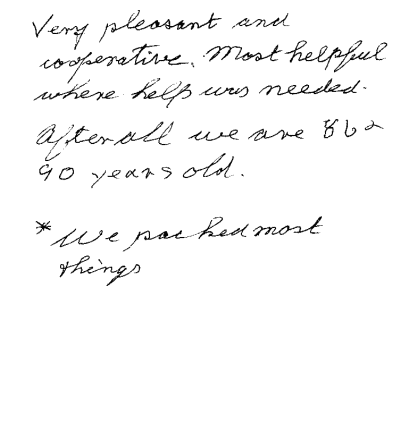 Very pleasant and
cooperative. Most helpful
where help was needed.
After all we are 86 &
90 years old.
* We packed most
things